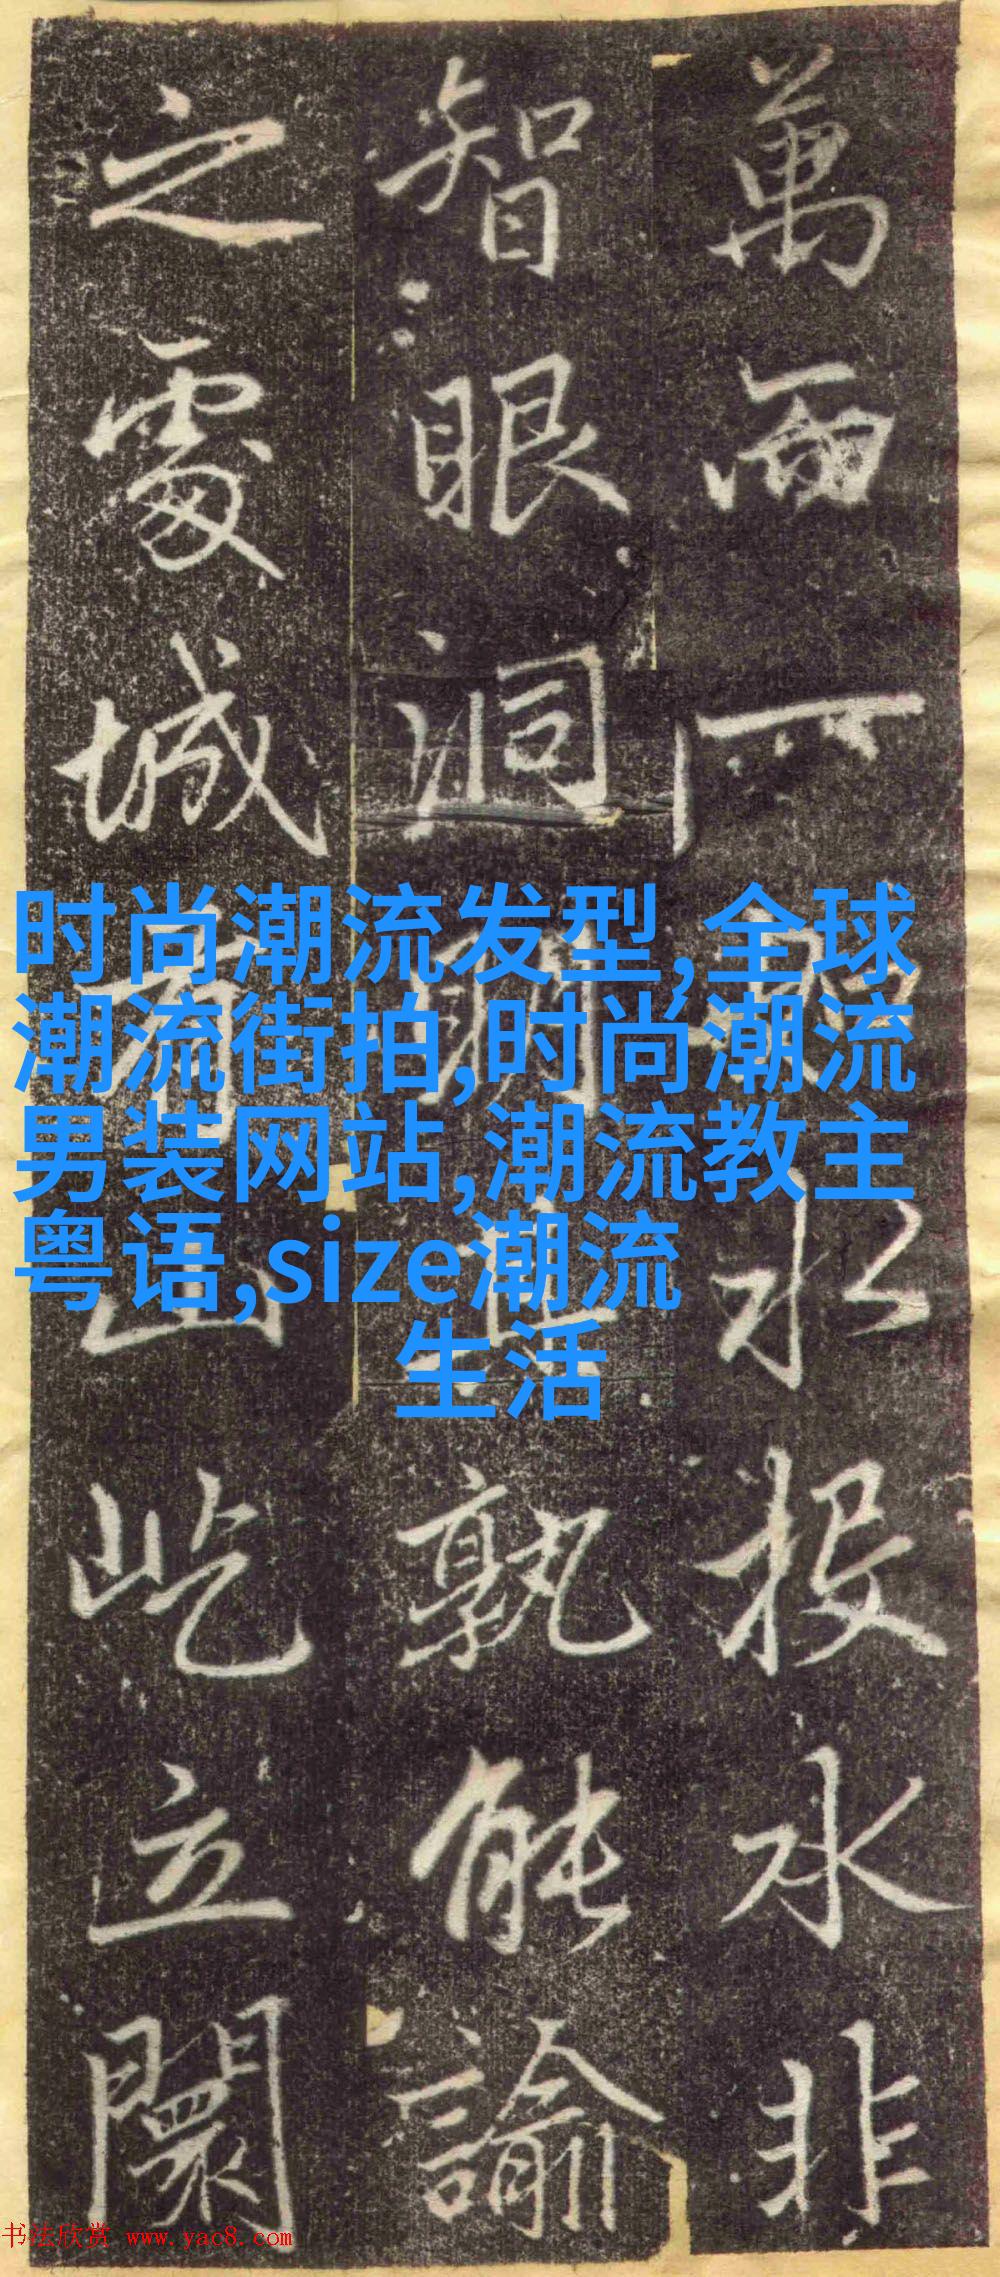 萬而一
水投水非
智眼洞
孰能諭
之處城
山屹立闤
时尚潮流发型,全球
潮流街拍,时尚潮流
男装网站,潮流教主
粤语,size潮流
生活
书法欣赏 www.yac8.com